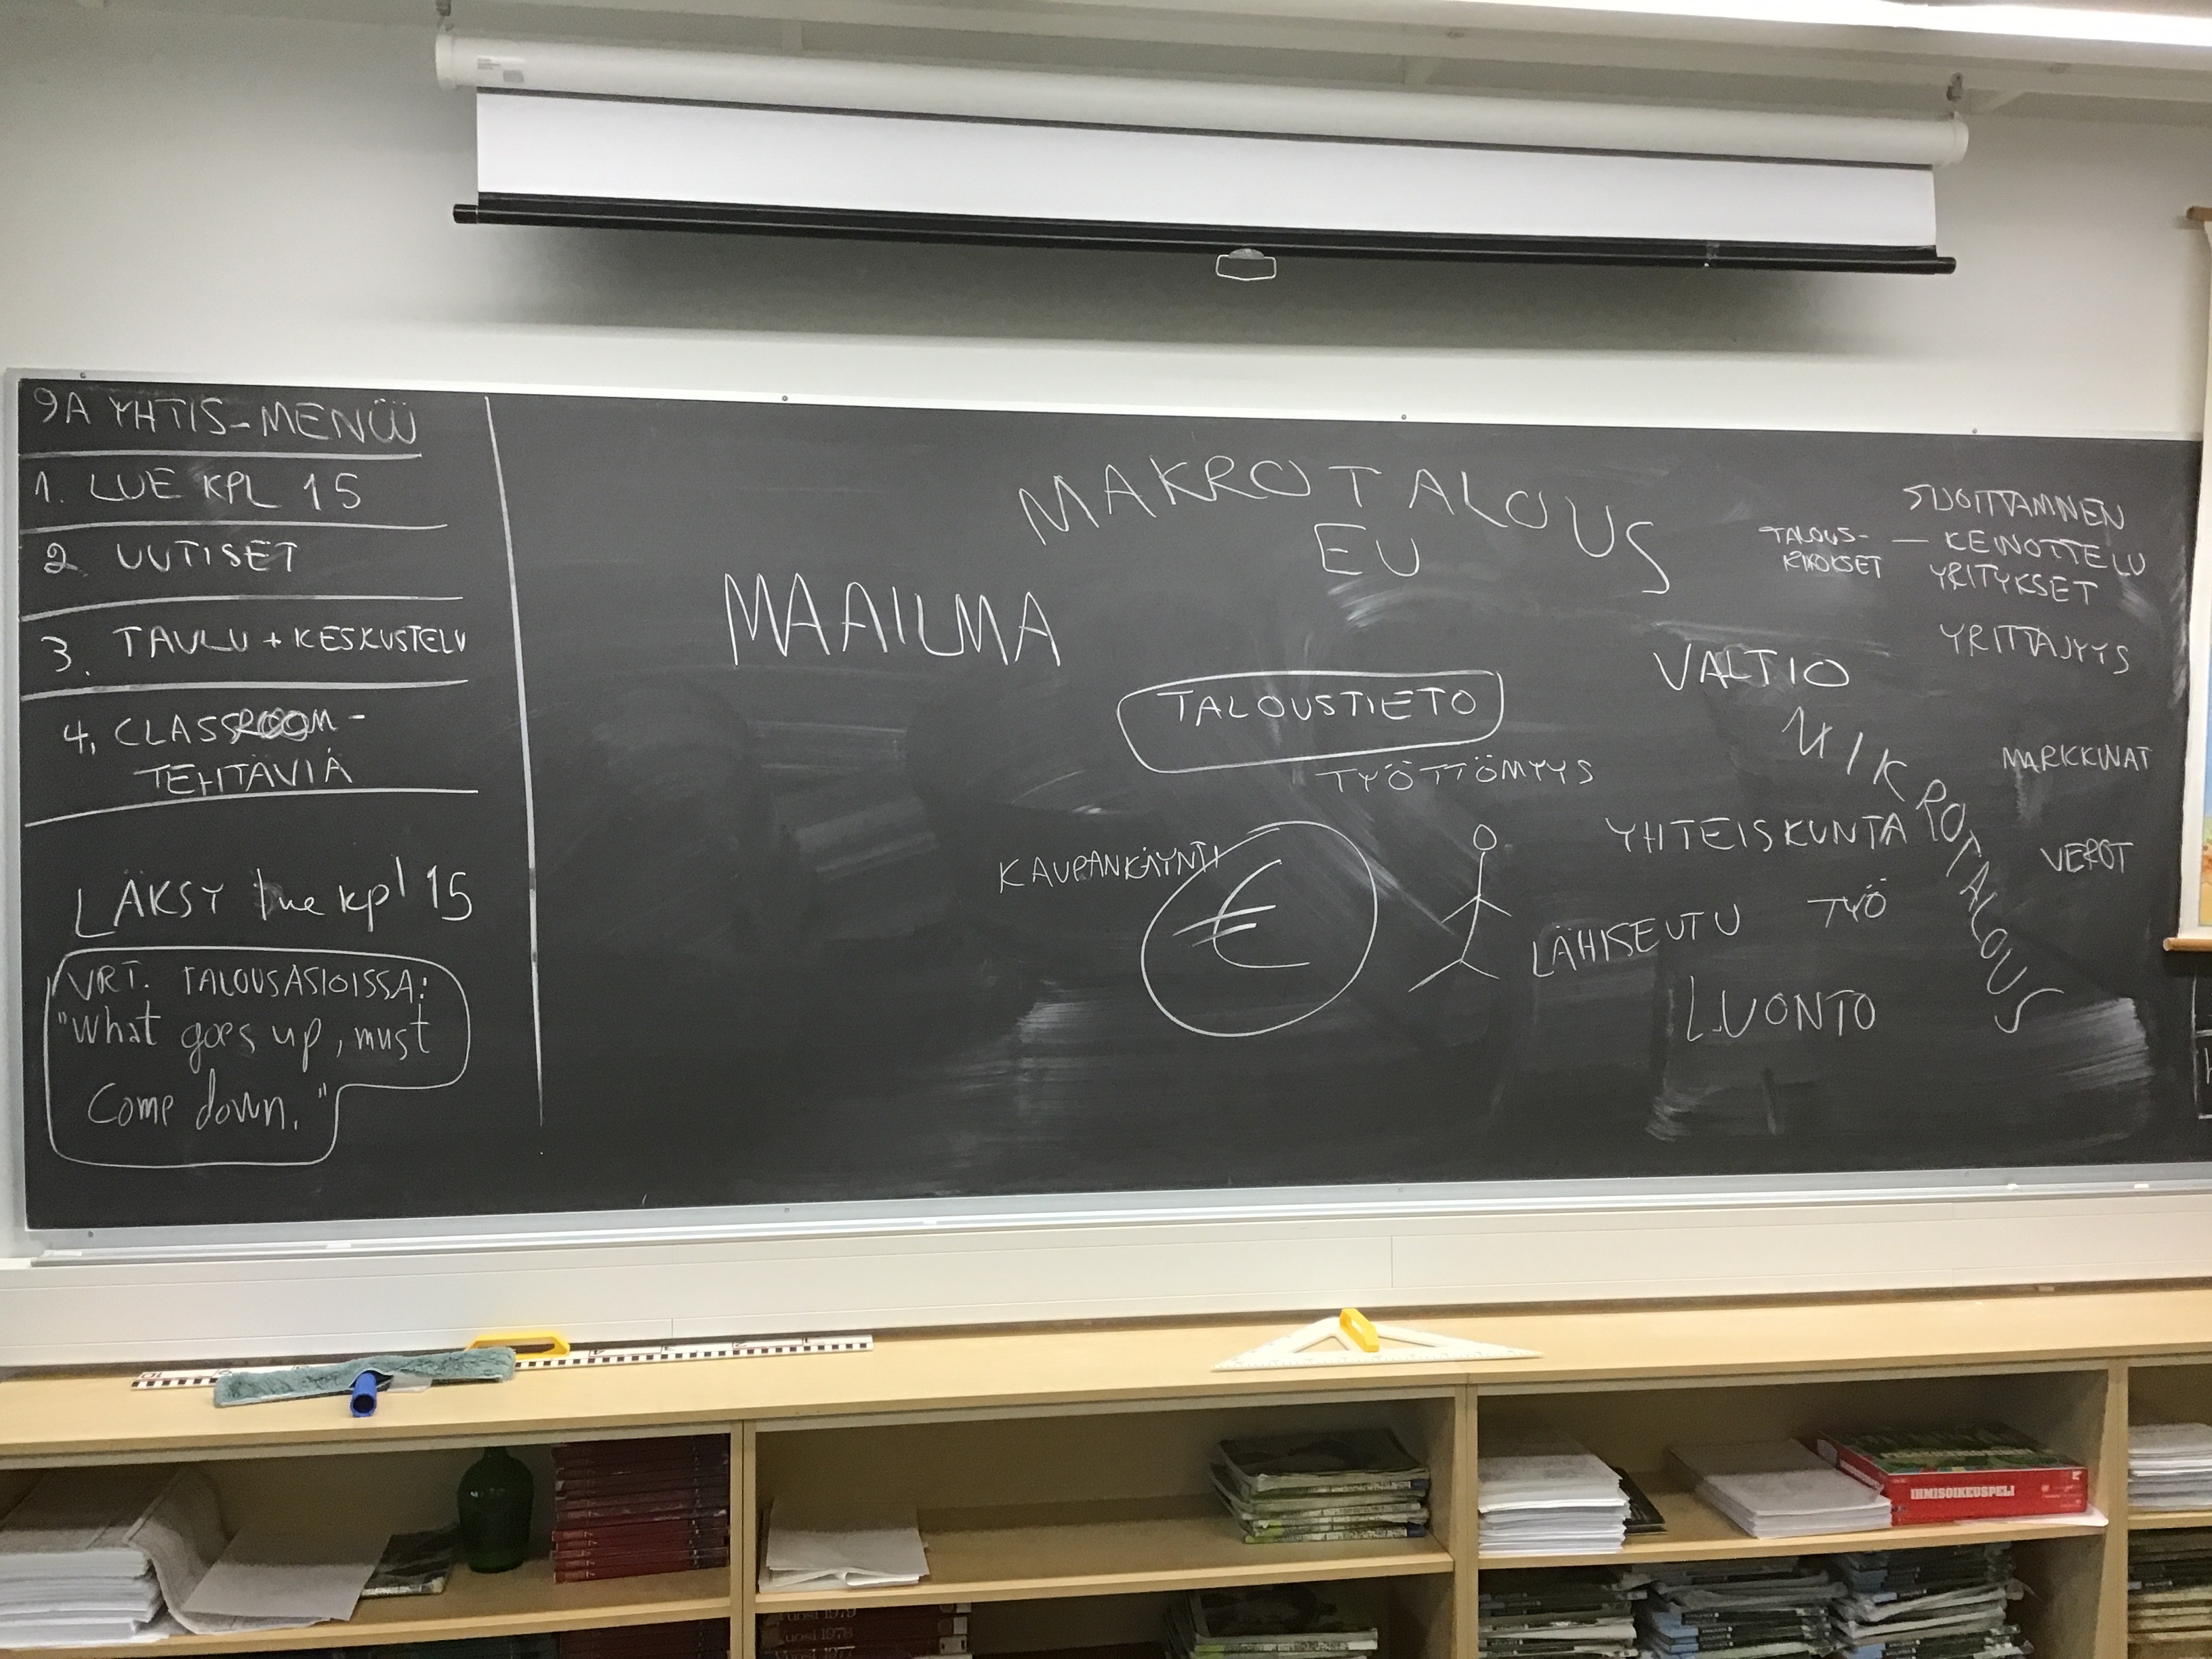 9A YHTIS-MENÜÜ
1. LUE KPL 15
2. UUTISET
3. TAULU + KESKUSTELU
4. CLASSROOM-
TEHTÄVIÄ
LÄKSY lue kpl 15
VRT. TALOUSASIOISSA:
"What goes up, must
Come down."
MAKROTALOUS
EU
MAAILMA
TALOUSTIETO
TYÖTTÖMYYS
KAUPANKÄYNTI
€
VALTIO
MIKROTALOUS
YHTEISKUNTA
LÄHISEUTU
TYÖ
LUONTO
SIJOITTAMINEN
TALOUS- — KEINOTTELU
RIKOKSET
YRITYKSET
YRITTÄJYYS
MARKKINAT
VEROT
IHMISOIKEUSPELI
Vuosi 1979
Vuosi 1978
Vuosi 1977